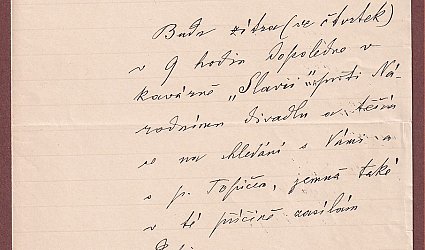 Budu zítra (ve čtvrtek)
v 9 hodin dopoledne v
kavárně „Slavii" proti Ná-
rodnímu divadlu a těším
se na shledání s Vámi a
s p. Topičem, jemuž také
v té příčině zasílám